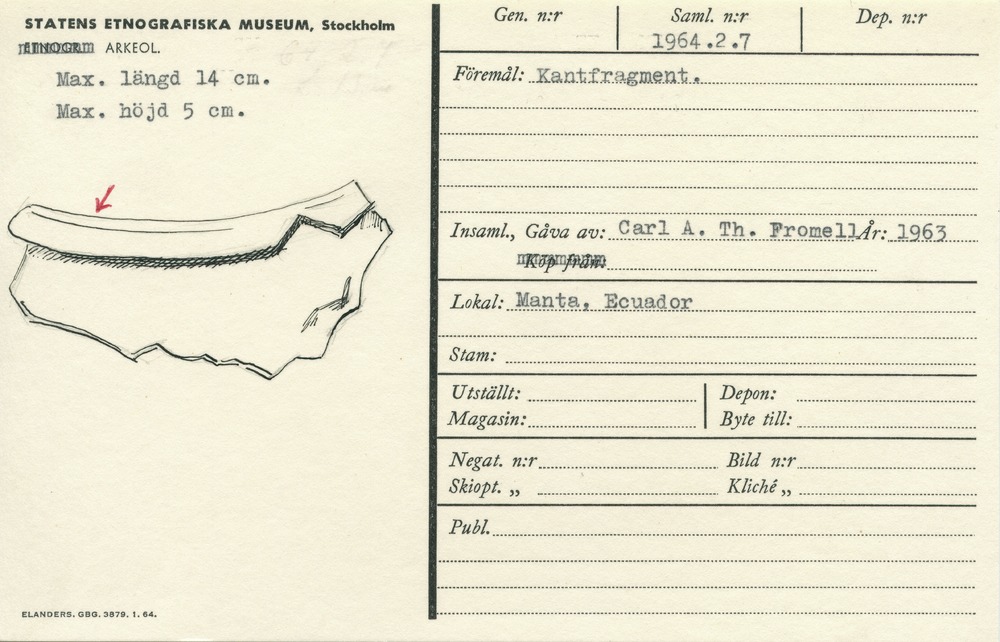 STATENS ETNOGRAFISKA MUSEUM, Stockholm
ARKEOL.
Max. längd 14 cm.
Max. höjd 5 cm.
ELANDERS. GBG. 3879. 1. 64.
Gen. n:r Saml. n:r Dep. n:r
1964.2.7
Föremål: Kantfragment.
Insaml., Gåva av: Carl A. Th. Fromell År: 1963
Köp från:
Lokal: Manta, Ecuador
Stam:
Utställt: Depon:
Magasin: Byte till:
Negat. n:r Bild n:r
Skiopt. „ Kliché „
Publ.